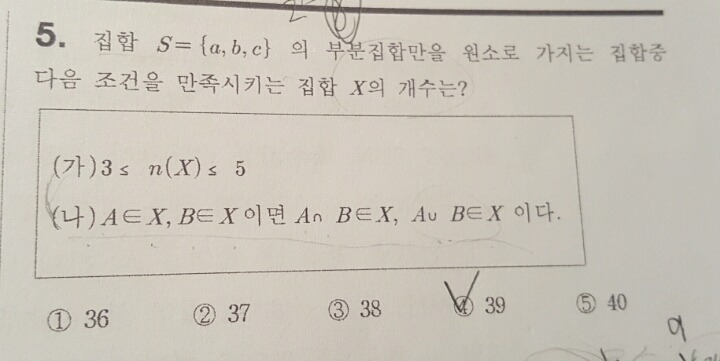 5. 집합 S={a, b, c} 의 부분집합만을 원소로 가지는 집합중
다음 조건을 만족시키는 집합 X의 개수는?
(가) 3 ≤ n(X) ≤ 5
(나) A∈X, B∈X 이면 A∩ B∈X, A∪ B∈X 이다.
① 36 ② 37 ③ 38 ④ 39 ⑤ 40